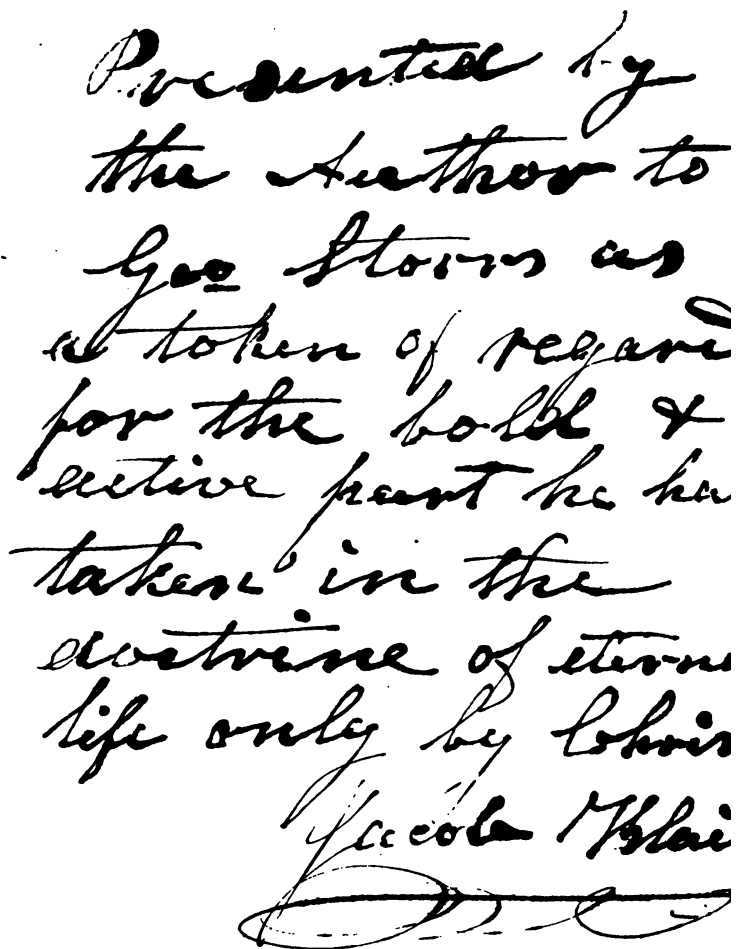 Presented by
the Author to
Geo Storrs as
a token of regard
for the bold &
active part he ha
taken in the
doctrine of eterna
life only by Chris
Jacob Blai